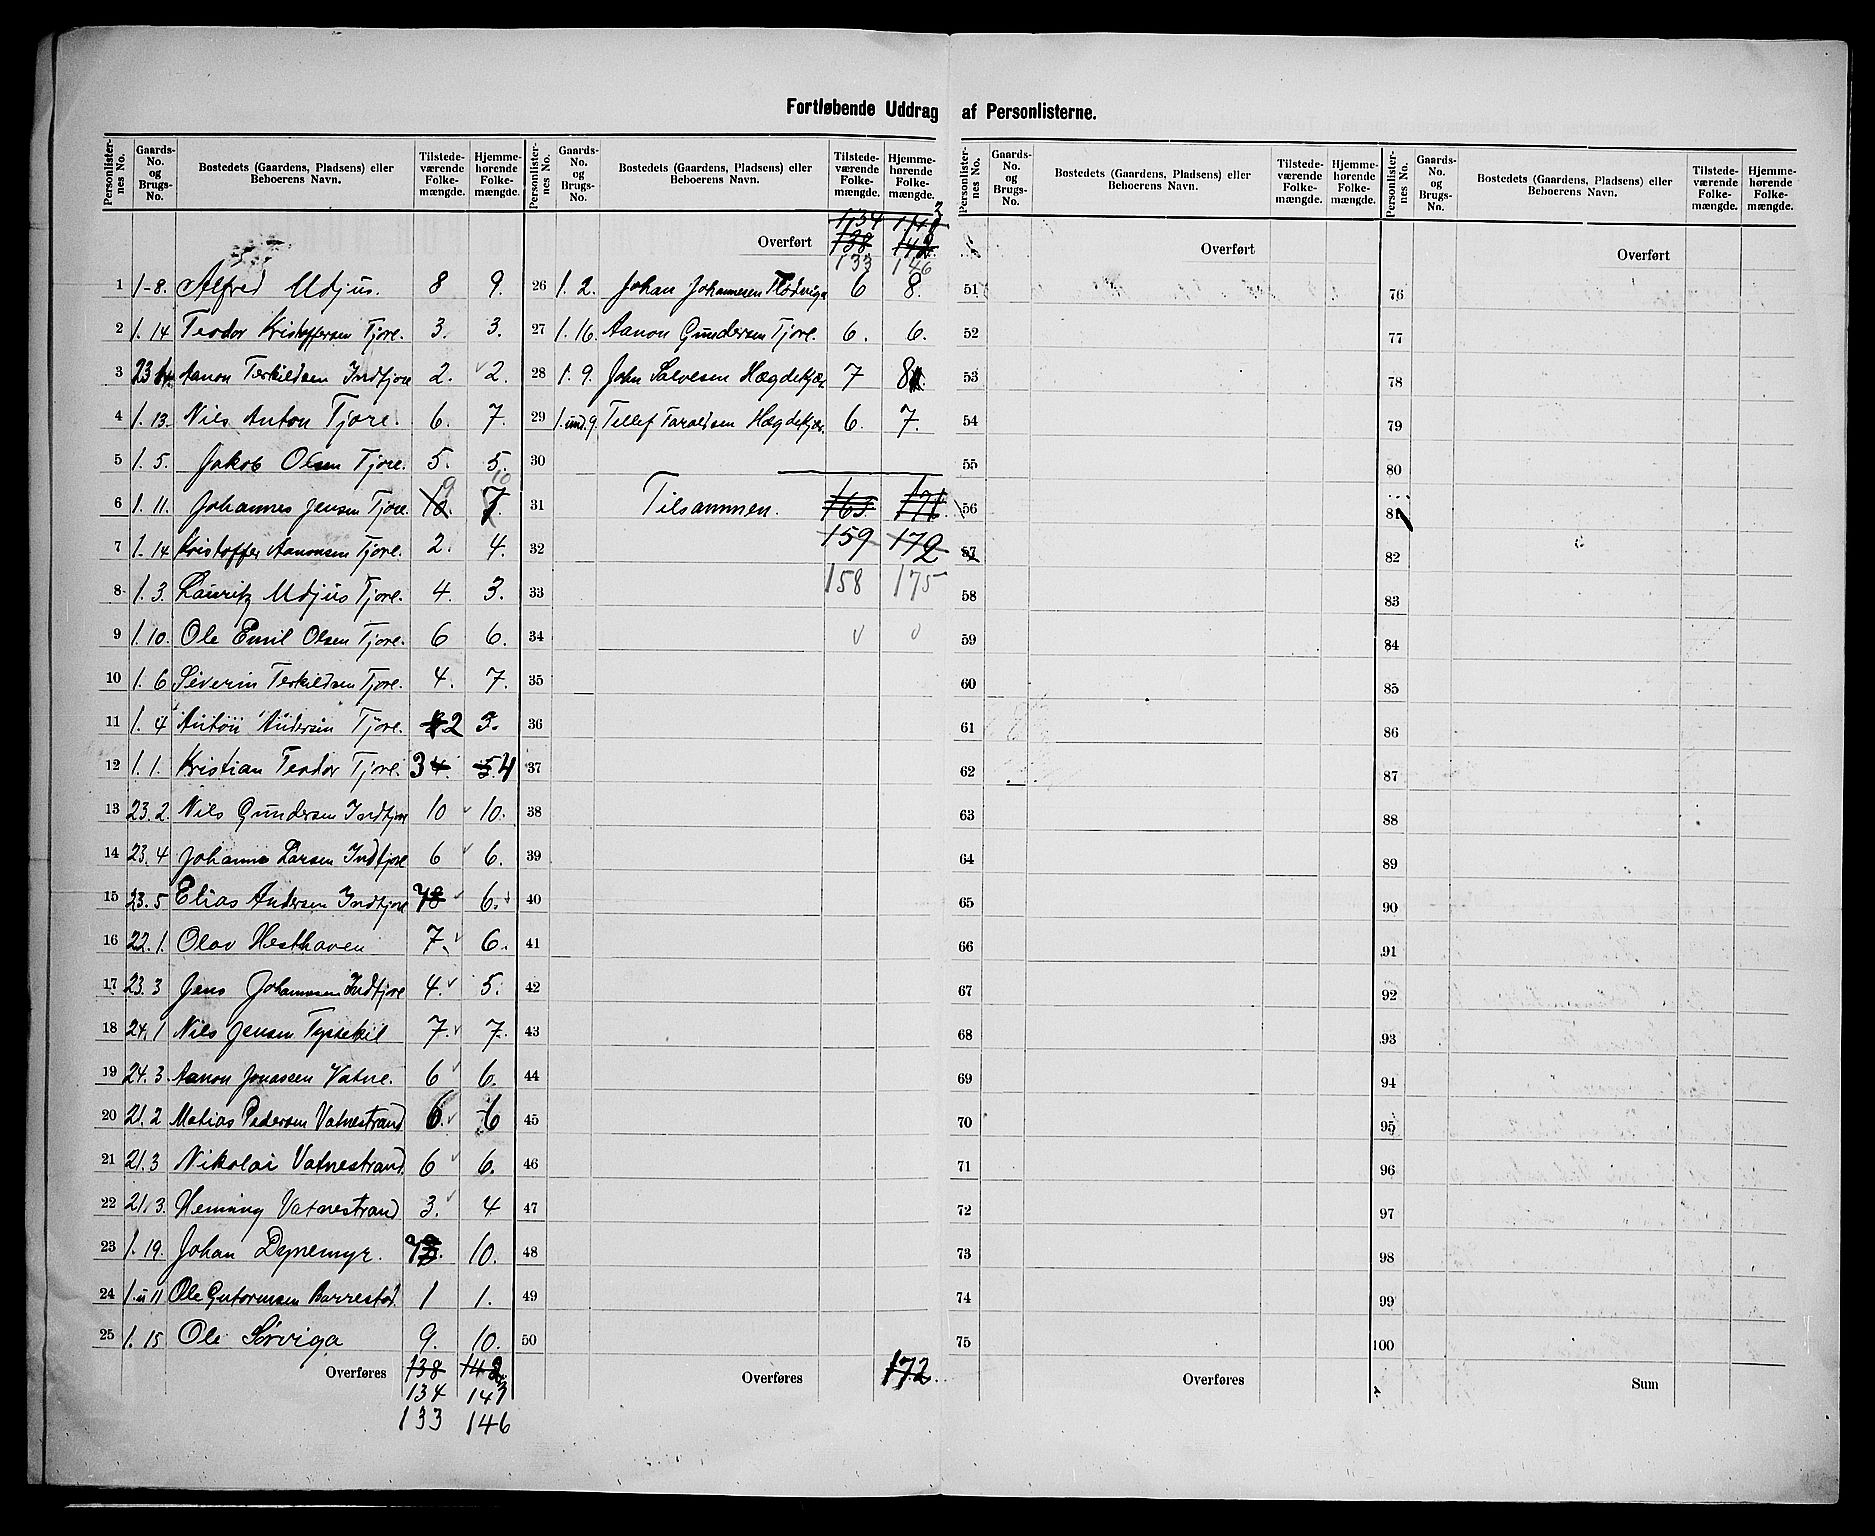 Fortløbende Uddrag af Personlisterne.
Personlister-nes No. | Gaards-No. og Brugs-No. | Bostedets (Gaardens, Pladsens) eller Beboerens Navn. | Tilstede-værende Folke-mængde. | Hjemme-hørende Folke-mængde.
1 1-8. Alfred Udjus. 8 9.
2 1.14 Teodor Kristoffersen Tjore. 3. 3.
3 23 Aanon Terkildsen Indtjore 2. 2.
4 1.13. Nils Anton Tjore. 6. 7.
5 1.5. Jakob Olsen Tjore. 5. 5.
6 1.11. Johannes Jensen Tjore. 10. 9 7. 10
7 1.14 Kristoffer Aanonsen Tjore. 2. 4.
8 1.3. Lauritz Udjus Tjore. 4. 3.
9 1.10. Ole Emil Olsen Tjore. 6 6.
10 1.6 Severin Terkildsen Tjore. 4. 7.
11 1.4 Anton Andersen Tjore. 2 3.
12 1.1. Kristian Teodor Tjore. 3 4. 5. 4
13 23.2. Nils Gundersen Indtjore 10 10.
14 23.4 Johannes Larsen Indtjore 6 6.
15 23.5 Elias Andersen Indtjore 7 8 6.
16 22.1. Olav Hesthaven 7. 6.
17 23.3 Jens Johannesen Indtjore 4. 5.
18 24.1 Nils Jensen Tyssekil 7. 7.
19 24.3 Aanon Jonassen Vatne. 6 6.
20 21.2 Matias Pedersen Vatnestrand 6. 6
21 21.3 Nikolai Vatnestrand. 6 6.
22 21.3. Heming Vatnestrand 3. 4
23 1.19. Johan Dynemyr. 7 10.
24 1.u 11 Ole Gutormsen Barrestad. 1 1.
25 1.15 Ole Sørviga 9. 10.
Overføres 138 142
134 143
133 146
Personlister-nes No. | Gaards-No. og Brugs-No. | Bostedets (Gaardens, Pladsens) eller Beboerens Navn. | Tilstede-værende Folke-mængde. | Hjemme-hørende Folke-mængde.
134 143
Overført 138 142
133 146
26 1.2. Johan Johannesen Flødviga 6 8.
27 1.16. Aanon Gundersen Tjore. 6. 6.
28 1.9. John Salvesen Hægdekjær 7 8
29 1.und.9. Tellef Taraldsen Hægdekjær. 6. 7.
30
31 Tilsammen. 163 171
32 159 172
33 158 175
34
35
36
37
38
39
40
41
42
43
44
45
46
47
48
49
50
Overføres 172.
Personlister-nes No. | Gaards-No. og Brugs-No. | Bostedets (Gaardens, Pladsens) eller Beboerens Navn. | Tilstede-værende Folke-mængde. | Hjemme-hørende Folke-mængde.
Overført
51
52
53
54
55
56
57
58
59
60
61
62
63
64
65
66
67
68
69
70
71
72
73
74
75
Overføres
Personlister-nes No. | Gaards-No. og Brugs-No. | Bostedets (Gaardens, Pladsens) eller Beboerens Navn. | Tilstede-værende Folke-mængde. | Hjemme-hørende Folke-mængde.
Overført
76
77
78
79
80
81
82
83
84
85
86
87
88
89
90
91
92
93
94
95
96
97
98
99
100
Sum